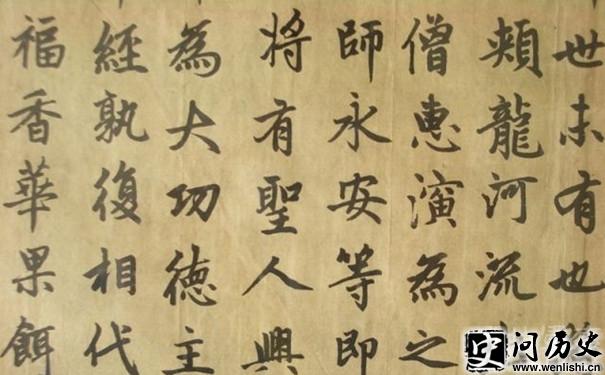 世未有也
頰龍河流
僧惠演為之
師永安等即
將有聖人興
為大功德主
經孰復相代
福香華果餌
史 问历史
www.wenlishi.cn